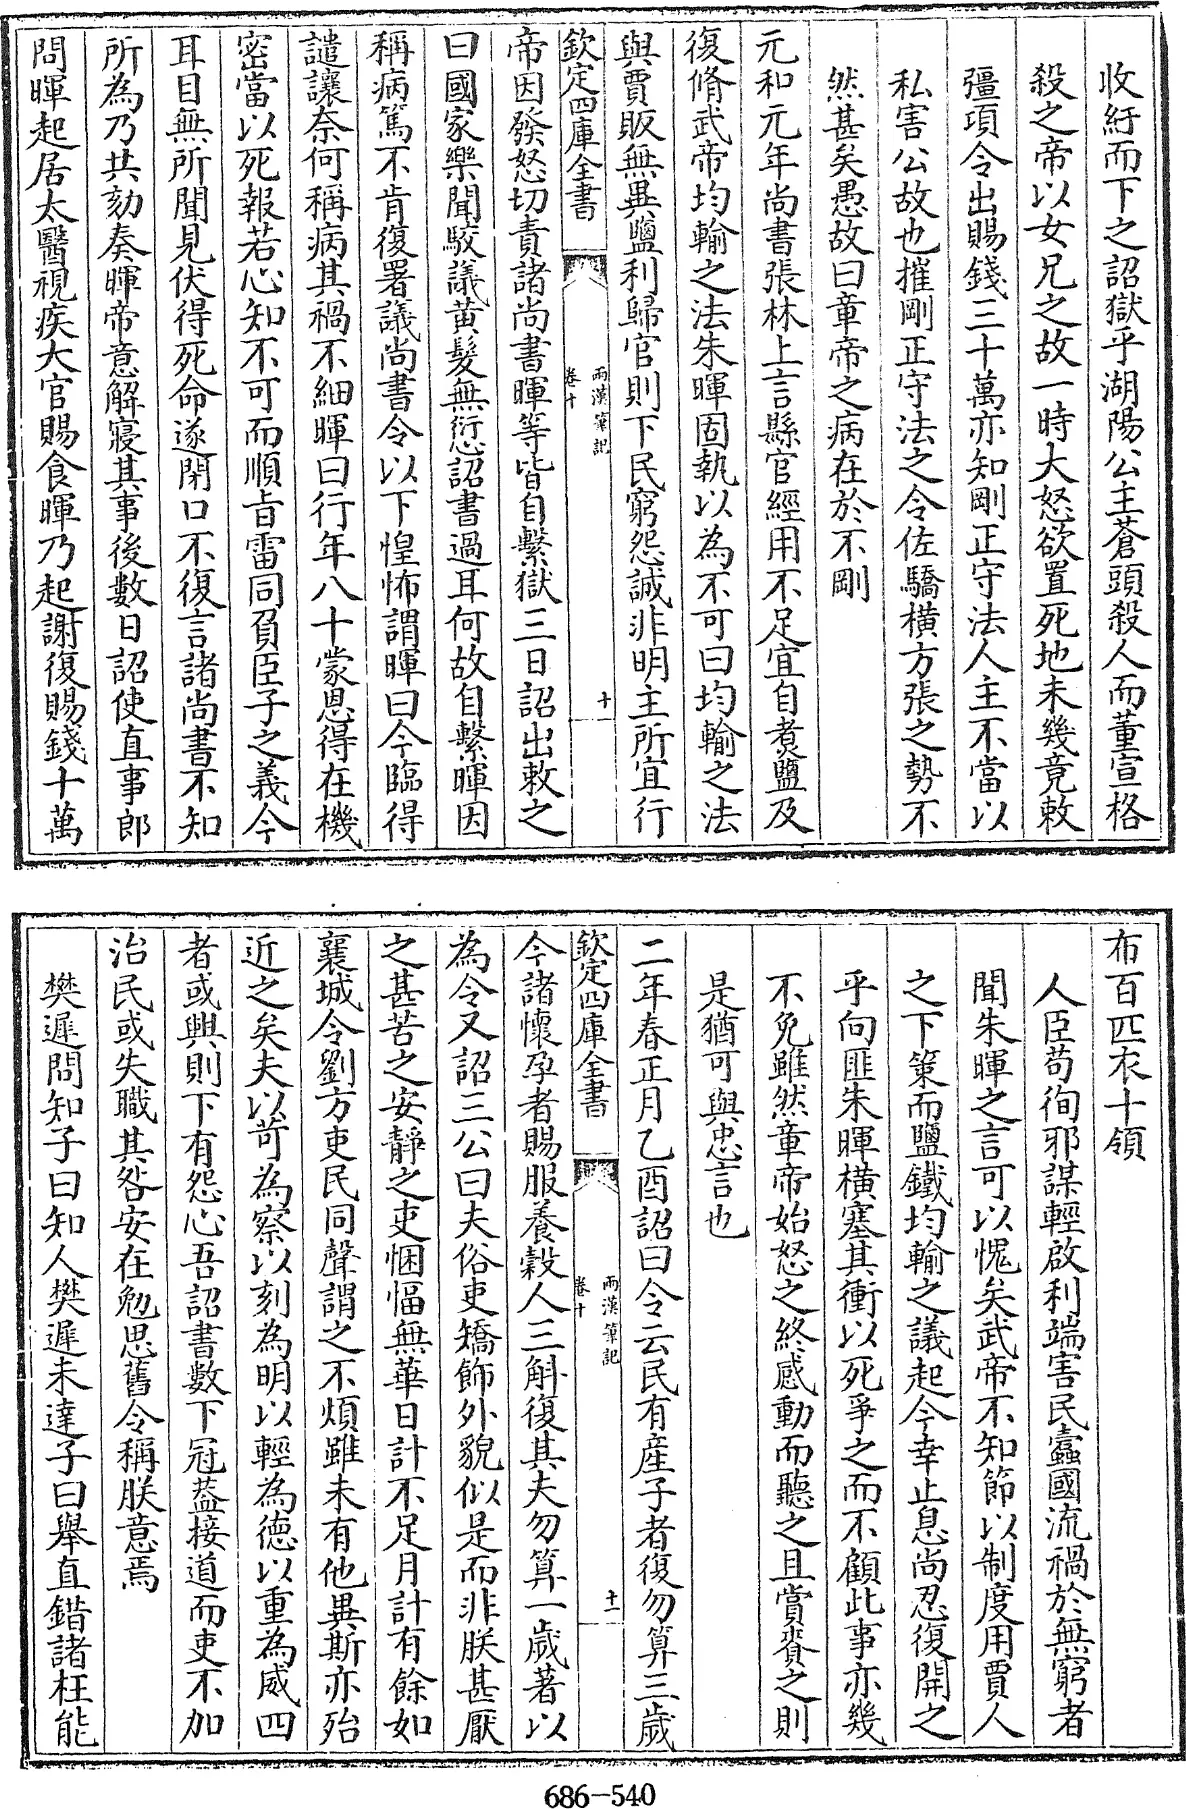 收紆而下之詔獄乎湖陽公主蒼頭殺人而董宣格
殺之帝以女兄之故一時大怒欲置死地未幾竟敕
彊項令出賜錢三十萬亦知剛正守法人主不當以
私害公故也摧剛正守法之令佐驕橫方張之勢不
然甚矣愚故曰章帝之病在於不剛
元和元年尚書張林上言縣官經用不足宜自煑鹽及
復脩武帝均輸之法朱暉固執以為不可曰均輸之法
與賈販無異鹽利歸官則下民窮怨誠非明主所宜行
欽定四庫全書
兩漢筆記
卷十
十
帝因發怒切責諸尚書暉等皆自繫獄三日詔出敕之
曰國家樂聞駮議黄髮無愆詔書過耳何故自繫暉因
稱病篤不肯復署議尚書令以下惶怖謂暉曰今臨得
譴讓奈何稱病其禍不細暉曰行年八十蒙恩得在機
密當以死報若心知不可而順旨雷同負臣子之義今
耳目無所聞見伏待死命遂閉口不復言諸尚書不知
所為乃共劾奏暉帝意解寢其事後數日詔使直事郎
問暉起居太醫視疾大官賜食暉乃起謝復賜錢十萬
布百匹衣十領
人臣苟徇邪謀輕啟利端害民蠹國流禍於無窮者
聞朱暉之言可以愧矣武帝不知節以制度用賈人
之下策而鹽鐵均輸之議起今幸止息尚忍復開之
乎向匪朱暉橫塞其衝以死爭之而不顧此事亦幾
不免雖然章帝始怒之終感動而聽之且賞賚之則
是猶可與忠言也
二年春正月乙酉詔曰令云民有産子者復勿算三歲
欽定四庫全書
兩漢筆記
卷十
十一
今諸懷孕者賜服養穀人三斛復其夫勿算一歲著以
為令又詔三公曰夫俗吏矯飾外貌似是而非朕甚厭
之甚苦之安靜之吏悃愊無華日計不足月計有餘如
襄城令劉方吏民同聲謂之不煩雖未有他異斯亦殆
近之矣夫以苛為察以刻為明以輕為德以重為威四
者或興則下有怨心吾詔書數下冠葢接道而吏不加
治民或失職其咎安在勉思舊令稱朕意焉
樊遲問知子曰知人樊遲未達子曰舉直錯諸枉能
686-540